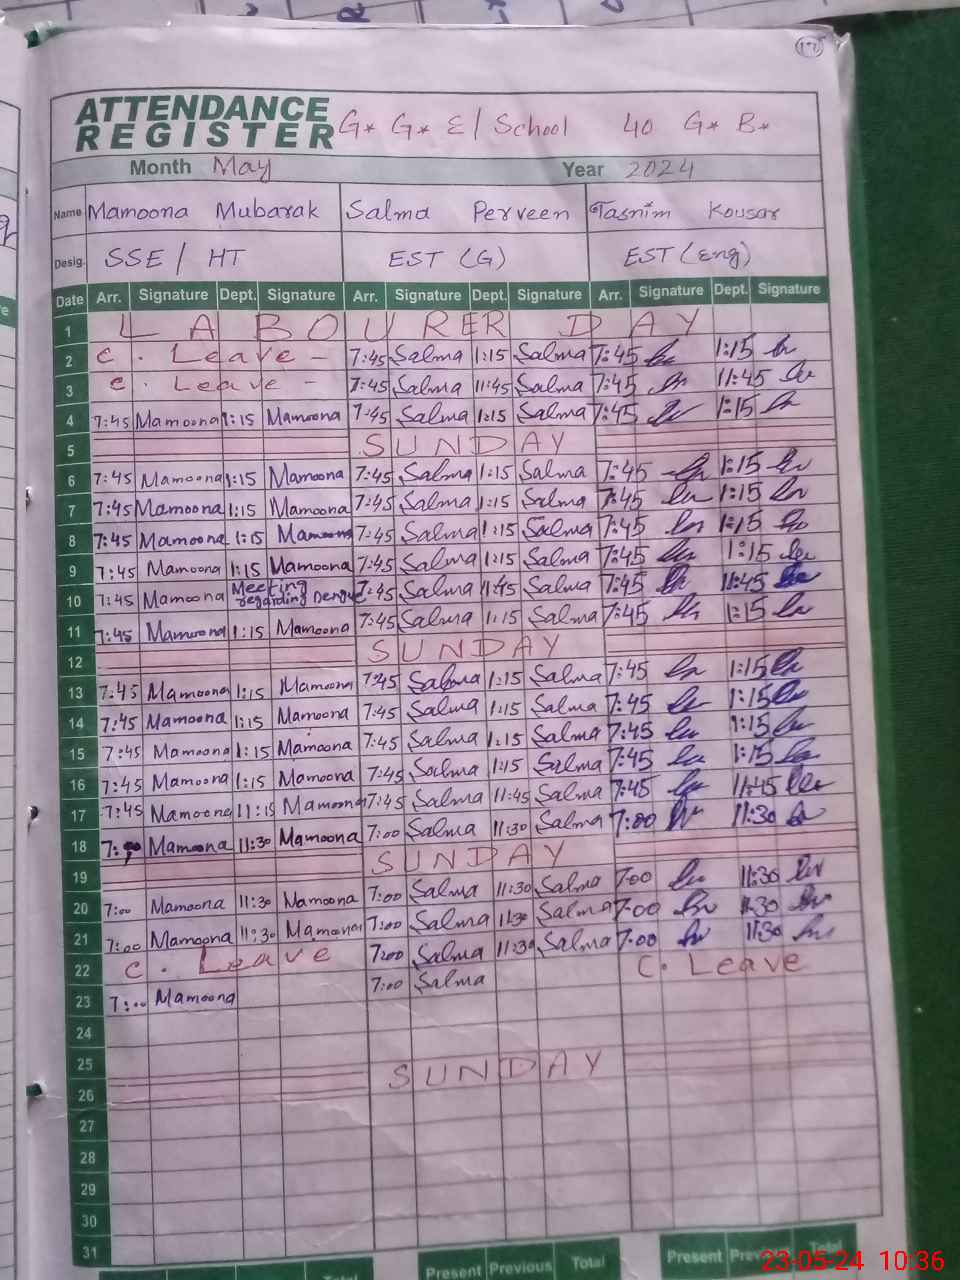 171
ATTENDANCE REGISTER G* G* E/School 40 G* B*
Month May Year 2024
Name Mamoona Mubarak Salma Perveen Tasnim Kousar
Desig. SSE / HT EST (G) EST (Eng)
Date Arr. Signature Dept. Signature Arr. Signature Dept. Signature Arr. Signature Dept. Signature
1 LABOURER DAY
2 C. Leave - 7:45 Salma 1:15 Salma 7:45 1:15
3 C. Leave - 7:45 Salma 11:45 Salma 7:45 11:45
4 7:45 Mamoona 1:15 Mamoona 7:45 Salma 1:15 Salma 7:45 1:15
5 SUNDAY
6 7:45 Mamoona 1:15 Mamoona 7:45 Salma 1:15 Salma 7:45 1:15
7 7:45 Mamoona 1:15 Mamoona 7:45 Salma 1:15 Salma 7:45 1:15
8 7:45 Mamoona 1:15 Mamoona 7:45 Salma 1:15 Salma 7:45 1:15
9 7:45 Mamoona 1:15 Mamoona 7:45 Salma 1:15 Salma 7:45 1:15
10 7:45 Mamoona Meeting regarding Dengue 7:45 Salma 11:45 Salma 7:45 11:45
11 7:45 Mamoona 1:15 Mamoona 7:45 Salma 1:15 Salma 7:45 1:15
12 SUNDAY
13 7:45 Mamoona 1:15 Mamoona 7:45 Salma 1:15 Salma 7:45 1:15
14 7:45 Mamoona 1:15 Mamoona 7:45 Salma 1:15 Salma 7:45 1:15
15 7:45 Mamoona 1:15 Mamoona 7:45 Salma 1:15 Salma 7:45 1:15
16 7:45 Mamoona 1:15 Mamoona 7:45 Salma 1:15 Salma 7:45 1:15
17 7:45 Mamoona 11:15 Mamoona 7:45 Salma 11:45 Salma 7:45 11:45
18 Mamoona 11:30 Mamoona 7:00 Salma 11:30 Salma 7:00 11:30
19 SUNDAY
20 7:00 Mamoona 11:30 Mamoona 7:00 Salma 11:30 Salma 7:00 11:30
21 7:00 Mamoona 11:30 Mamoona 7:00 Salma 11:30 Salma 7:00 11:30
22 C. Leave 7:00 Salma 11:30 Salma 7:00 11:30
23 7:00 Mamoona 7:00 Salma C. Leave
24
25
26 SUNDAY
27
28
29
30
31
Total Present Previous Total Present Total
23-05-24 10:36